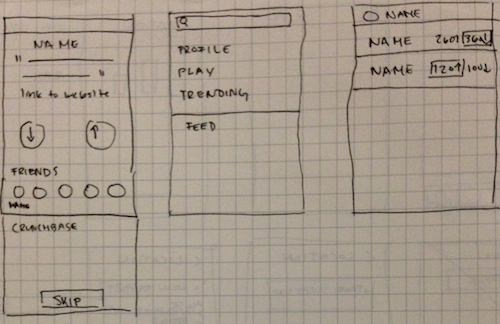 NAME
" "
link to website
↓ ↑
FRIENDS
NAME
CRUNCHBASE
SKIP
PROFILE
PLAY
TRENDING
FEED
NAME
NAME 260↑ 36↓
NAME 120↑ 100↓